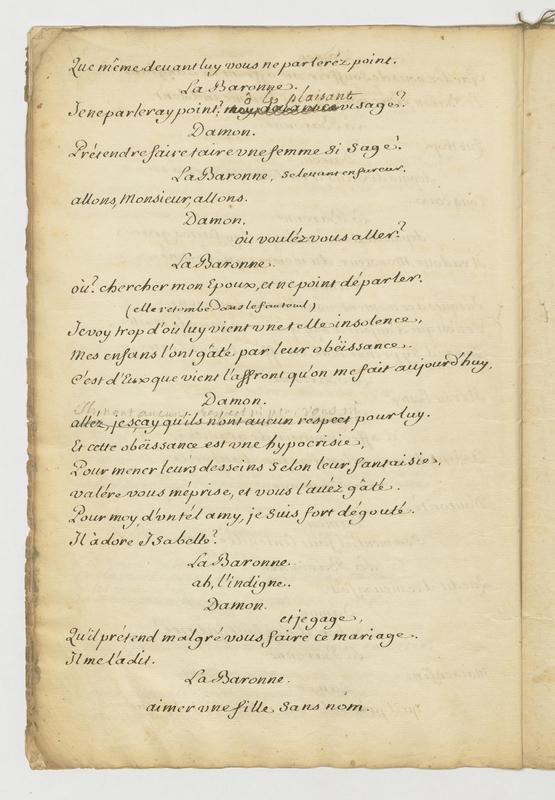 Que même devant luy vous ne parleréz point.
La Baronne.
ô le plaisant
Je ne parleray point? visage?
Damon.
Prétendre faire taire vne femme si sage!
La Baronne, se levant en fureur.
allons, Monsieur, allons.
Damon.
où vouléz vous aller?
La Baronne.
où? chercher mon Epoux, et ne point déparler.
(elle retombe dans le fauteuil)
Je voy trop d'où luy vient vne telle insolence,
Mes enfans l'ont gâté par leur obëissance.
C'est d'Eux que vient l'affront qu'on me fait aujourd'huy,
Damon.
Ils n'ont aucun respect ni pour vous ni
alléz, je sçay qu'ils n'ont aucun respect pour luy.
Et cette obëissance est vne hypocrisie,
Pour mener leurs desseins selon leur fantaisie,
valére vous méprise, et vous l'avéz gâté.
Pour moy, d'vn tél amy, je suis fort dégouté.
Il àdore Isabelle?
La Baronne.
ah, l'indigne.
Damon.
et je gage,
Qu'il prétend malgré vous faire ce mariage.
Il me l'a dit.
La Baronne.
aimer vne fille sans nóm.